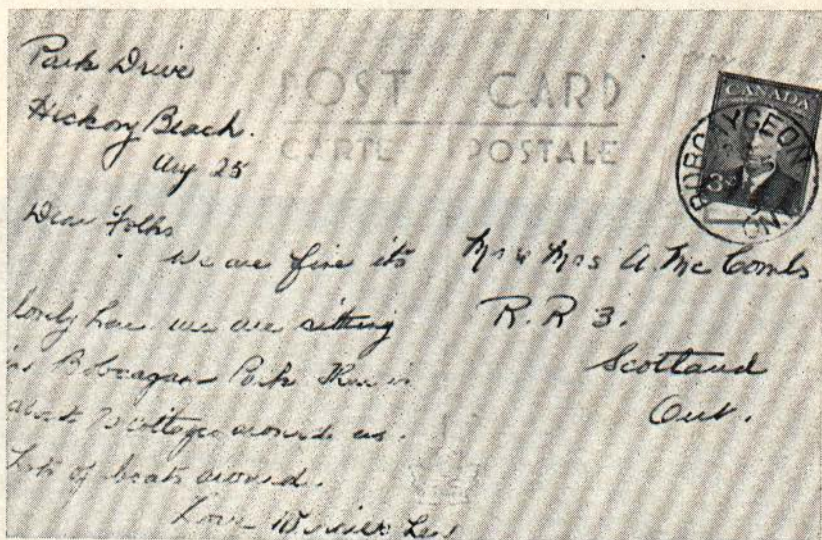 Park Drive
Hickory Beach.
Aug 25
POST CARD
CARTE POSTALE
CANADA
BOBCAYGEON
ONT
3
Dear Folks
We are fine its
lovely here we are sitting
in Park There is
about cottages around us.
Lots of boats around.
Love
Mr & Mrs A. Mc Combs
R. R 3.
Scotland
Ont.